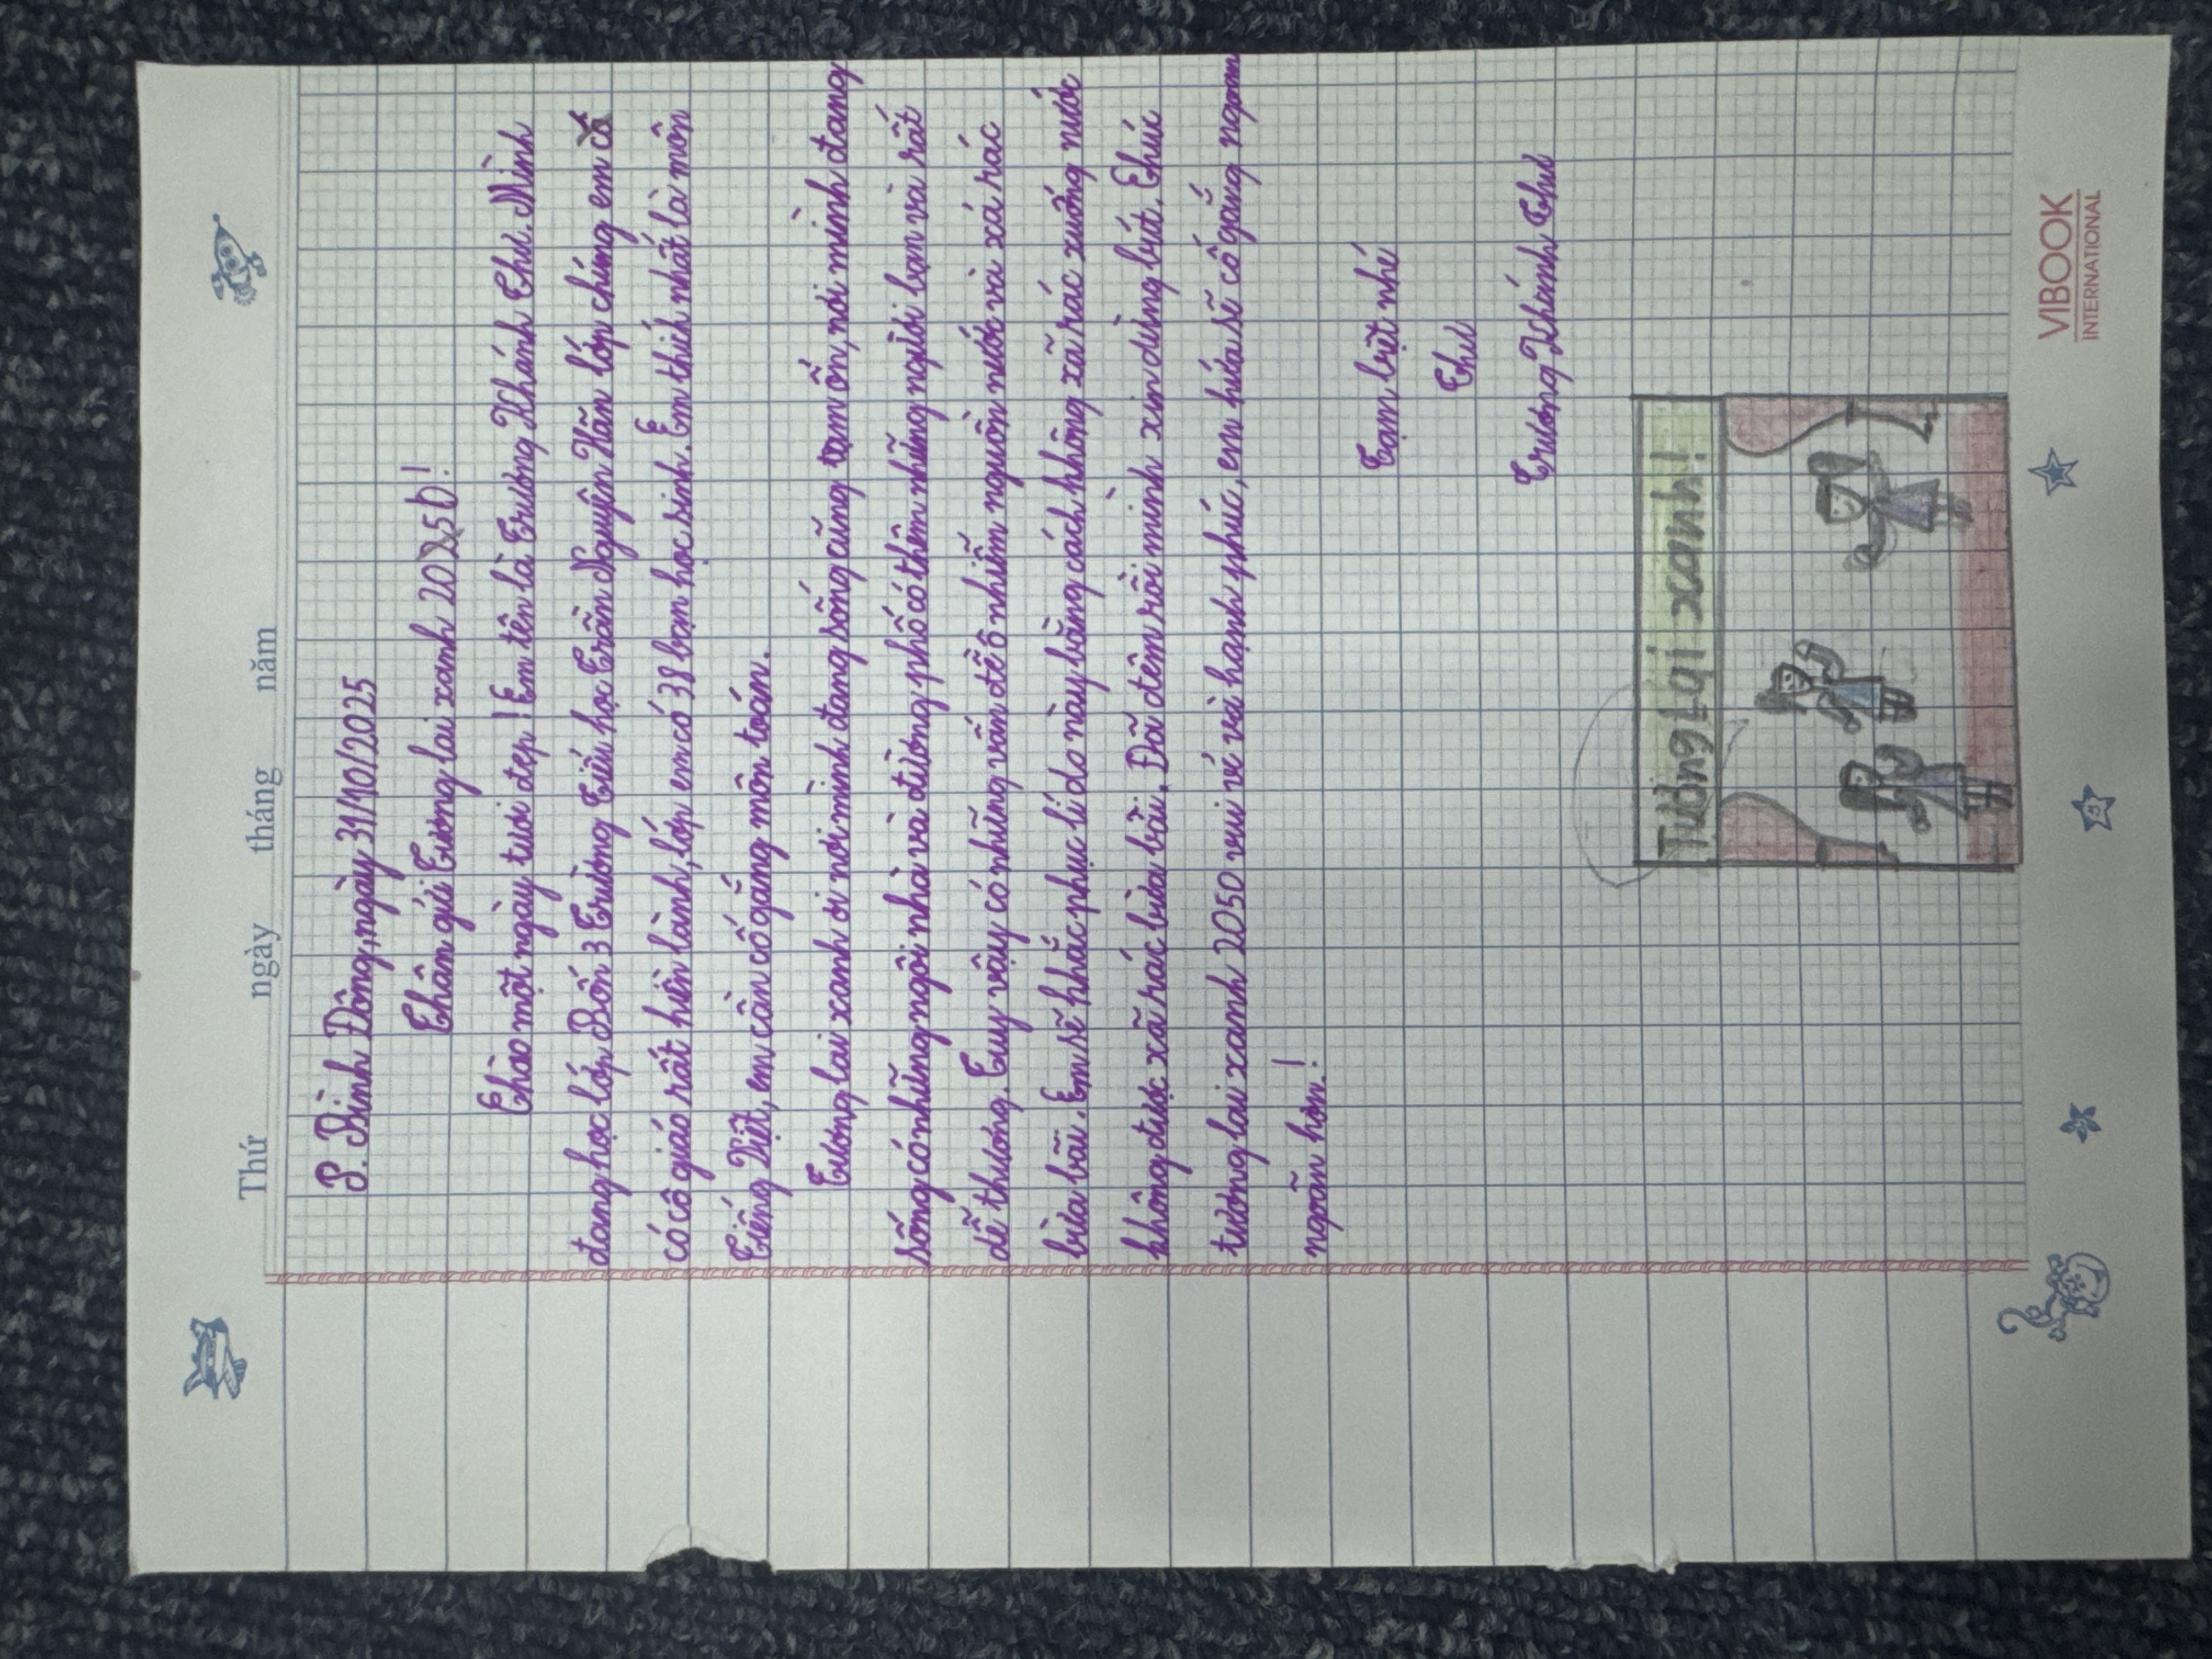 Thứ ngày tháng năm
P. Bình Đông, ngày 31/10/2025
Thân gửi Tương lai xanh 2050!
Chào một ngày tươi đẹp! Em tên là Trương Khánh Thư. Mình
đang học lớp Bốn 3 Trường Tiểu học Trần Nguyên Hãn lớp chúng em
có cô giáo rất hiền lành, lớp em có 38 bạn học sinh. Em thích nhất là môn
Tiếng Việt, em cần cố gắng môn toán.
Tương lai xanh ơi nơi mình đang sống cũng tạm ổn, nơi mình đang
sống có những ngôi nhà và đường phố có thêm những người bạn và rất
dễ thương. Tuy vậy có những vấn đề ô nhiễm nguồn nước và xả rác
bừa bãi. Em sẽ khắc phục lí do này bằng cách không xã rác xuống nước
không được xã rác bừa bãi. Đã đêm rồi mình xin dừng bút. Chúc
tương lai xanh 2050 vui vẻ và hạnh phúc, em hứa sẽ cố gắng ngoan
ngoãn hơn!
Tạm biệt nhé
Thư
Trương Khánh Thư
Tương Lai xanh!
VIBOOK
INTERNATIONAL